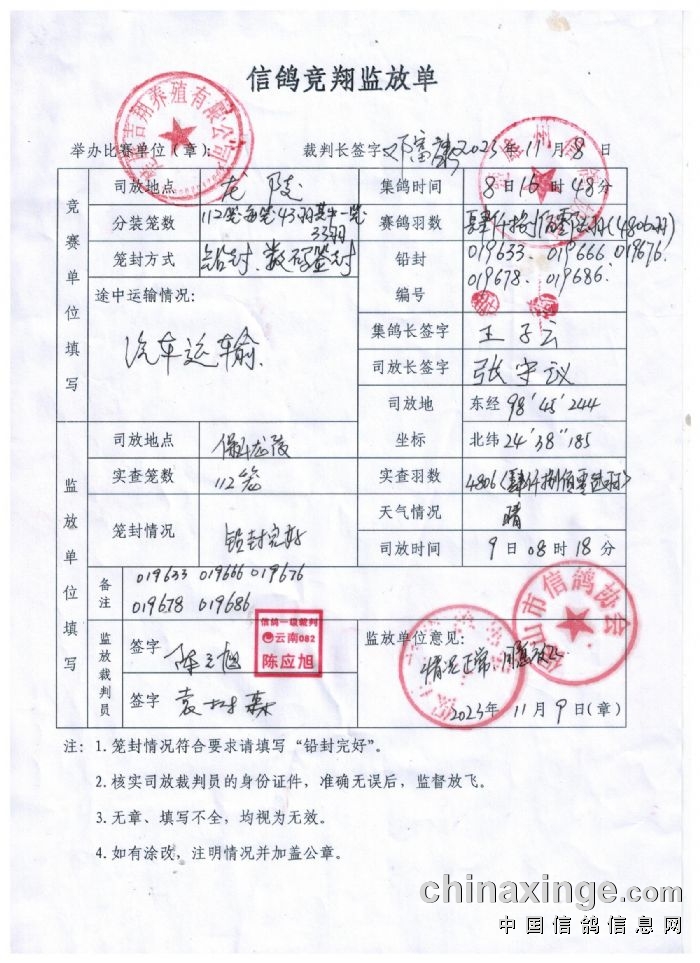 信鸽竞翔监放单
举办比赛单位(章): 裁判长签字 2023年11月8日
吉翔养殖有限公司
竞赛单位填写
司放地点 龙陵 集鸽时间 8日16时48分
分装笼数 112笼每笼43羽其中一笼33羽 赛鸽羽数 肆仟捌佰零陆羽(4806羽)
笼封方式 铅封、数码签封 铅封编号 019633、019666 019676、019678、019686
途中运输情况:
汽车运输
集鸽长签字 王子云
司放长签字 张守议
司放地坐标 东经 98'45'244
北纬 24'38"185
监放单位填写
司放地点 保山龙陵
实查笼数 112笼 实查羽数 4806(肆仟捌佰零陆羽)
笼封情况 铅封完好 天气情况 晴
司放时间 9日08时18分
备注 019633 019666 019676
019678 019686
监放裁判员
签字 陈应旭
信鸽一级裁判
云南082
陈应旭
签字 袁树森
监放单位意见:
情况正常,同意放飞
山市信鸽协会
2023年11月9日(章)
注: 1. 笼封情况符合要求请填写“铅封完好”。
2. 核实司放裁判员的身份证件,准确无误后,监督放飞。
3. 无章、填写不全,均视为无效。
4. 如有涂改,注明情况并加盖公章。
chinaxinge.com
中国信鸽信息网